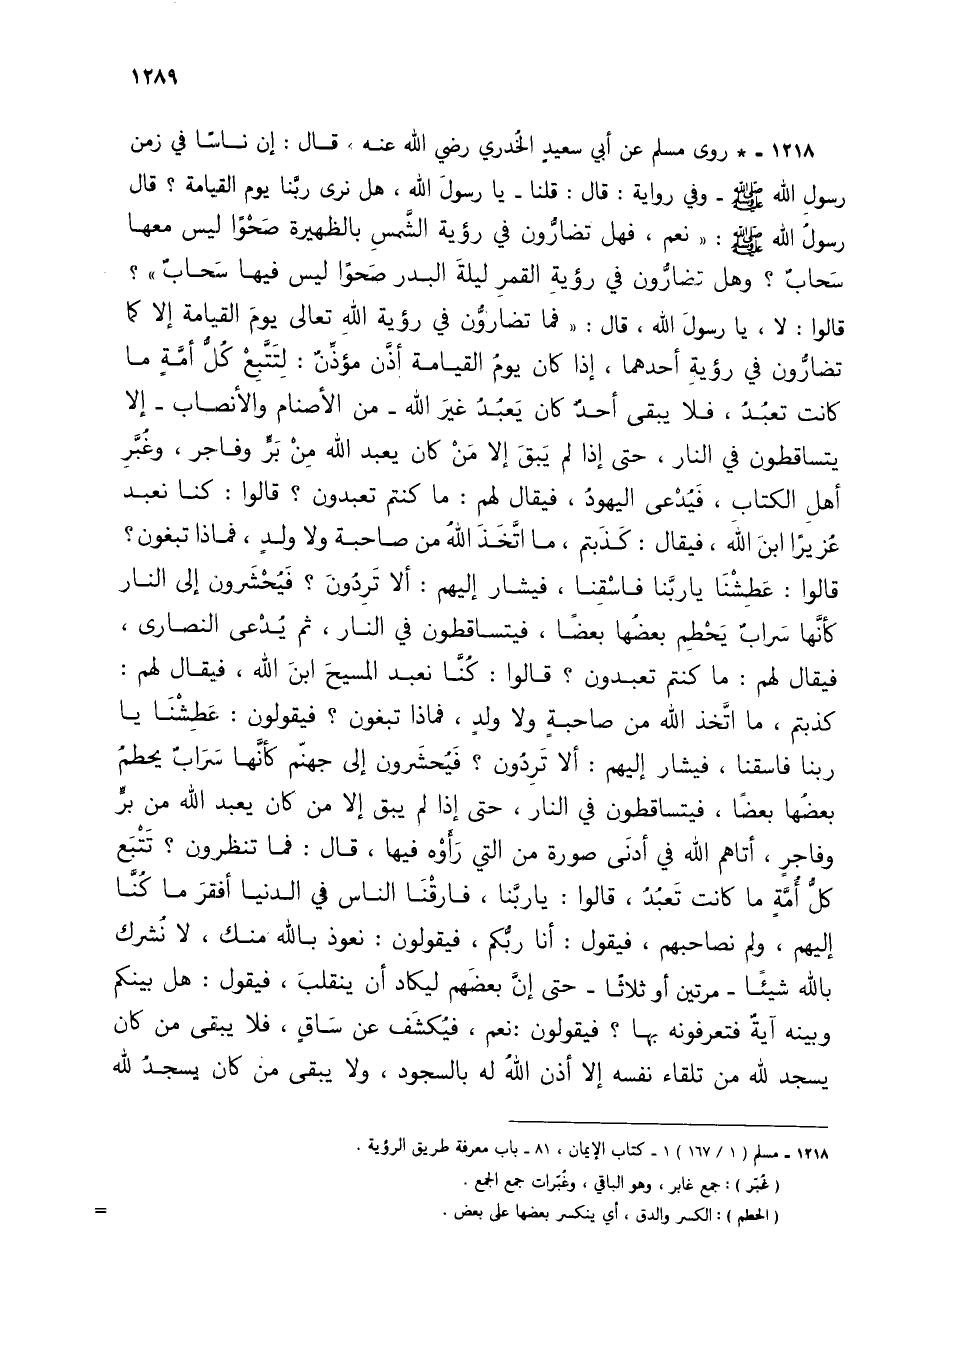 ١٢٨٩
١٢١٨ - * روى مسلم عن أبي سعيدٍ الخُدري رضي الله عنه ، قـال : إن نـاسًـا في زمن
رسول الله ﷺ - وفي رواية : قال : قلنا - يا رسولَ الله ، هل نرى ربَّنا يوم القيامة ؟ قال
رسولُ الله ﷺ : « نعم ، فهل تضارُّون في رؤية الشَّمس بالظهيرة صَحْوًا ليس معهـا
سَحابٌ ؟ وهل تضارُّون في رؤيةِ القمر ليلةَ البدر صَحوًا ليس فيهـا سَحابٌ » ؟
قالوا : لا ، يا رسولَ الله ، قال : « فما تضاروُّن في رؤية اللهِ تعالى يومَ القيامة إلا كما
تضارُّون في رؤيةِ أحدهما ، إذا كان يومُ القيـامـة أذَّن مؤذِّنٌ : لِتَتَّبِعْ كُلُّ أمَّةٍ مـا
كانت تعبُدُ ، فـلا يبقى أحدٌ كان يَعبُدُ غيَر الله - من الأصنام والأنصـاب - إلا
يتسـاقطون في النار ، حتى إذا لم يَبقَ إلا مَنْ كان يعبد الله مِنْ بَرٍّ وفـاجر ، وغُبَّرِ
أهل الكتاب ، فَيُدْعى اليهودُ ، فيقال لهم : ما كنتم تعبدون ؟ قالوا : كنـا نعبد
عُزيرًا ابنَ الله ، فيقال : كَذَبتم ، مـا اتَّخَذَ اللهُ من صـاحبـة ولا ولـدٍ ، فماذا تبغون ؟
قالوا : عَطِشْنَا ياربَّنا فـاسْقِنـا ، فيشـار إليهم : ألا تَرِدُونَ ؟ فَيُحْشَرون إلى النـار
كأنَّها سَرابٌ يَحْطِم بعضُها بعضًـا ، فيتسـاقطون في النـار ، ثم يُـدْعى النصـارى ،
فيقال لهم : ما كنتم تعبـدون ؟ قـالوا : كُنَّـا نعبـد المسيحَ ابنَ الله ، فيقـال لهم :
كذبتم ، ما اتَّخذ الله من صاحبةٍ ولا ولدٍ ، فماذا تبغون ؟ فيقولون : عَطِشْنَـا يـا
ربنا فاسقنا ، فيشار إليهم : ألا تَرِدُون ؟ فَيُحشَرون إلى جهنَّم كأنَّهـا سَرَابٌ يحطِمُ
بعضُها بعضًا ، فيتساقطون في النار ، حتى إذا لم يبق إلا من كان يعبد الله من برٍّ
وفاجرٍ ، أتاهم الله في أدنَى صورة من التي رَأَوْه فيها ، قـال : فمـا تنظرون ؟ تَتْبَع
كلُّ أُمَّةٍ ما كانت تَعبُدُ ، قالوا : ياربَّنا ، فـارقْنَـا النـاس في الـدنيـا أفقرَ مـا كُنَّـا
إليهم ، ولم نصاحبهم ، فيقول : أنا ربُّكم ، فيقولون : نعوذ بـالله منـك ، لا نُشرك
بالله شيئًـا - مرتين أو ثلاثًـا - حتى إنَّ بعضَهم ليكاد أن ينقلبَ ، فيقول : هل بينكم
وبينه آيةٌ فتعرفونه بهـا ؟ فيقولون :نعم ، فيُكشَف عن سَـاقٍ ، فلا يبقى من كان
يسجد لله من تلقاء نفسه إلا أذن اللهُ له بالسجود ، ولا يبقى من كان يسجـدُ لله
١٢١٨ - مسلم ( ١ / ١٦٧ ) ١ - كتاب الإيمان ، ٨١ - باب معرفة طريق الرؤية .
( غُبَّر ) : جمع غابر ، وهو الباقي ، وغُبَّرات جمع الجمع .
( الحطم ) : الكسر والدق ، أي ينكسر بعضها على بعض .
=